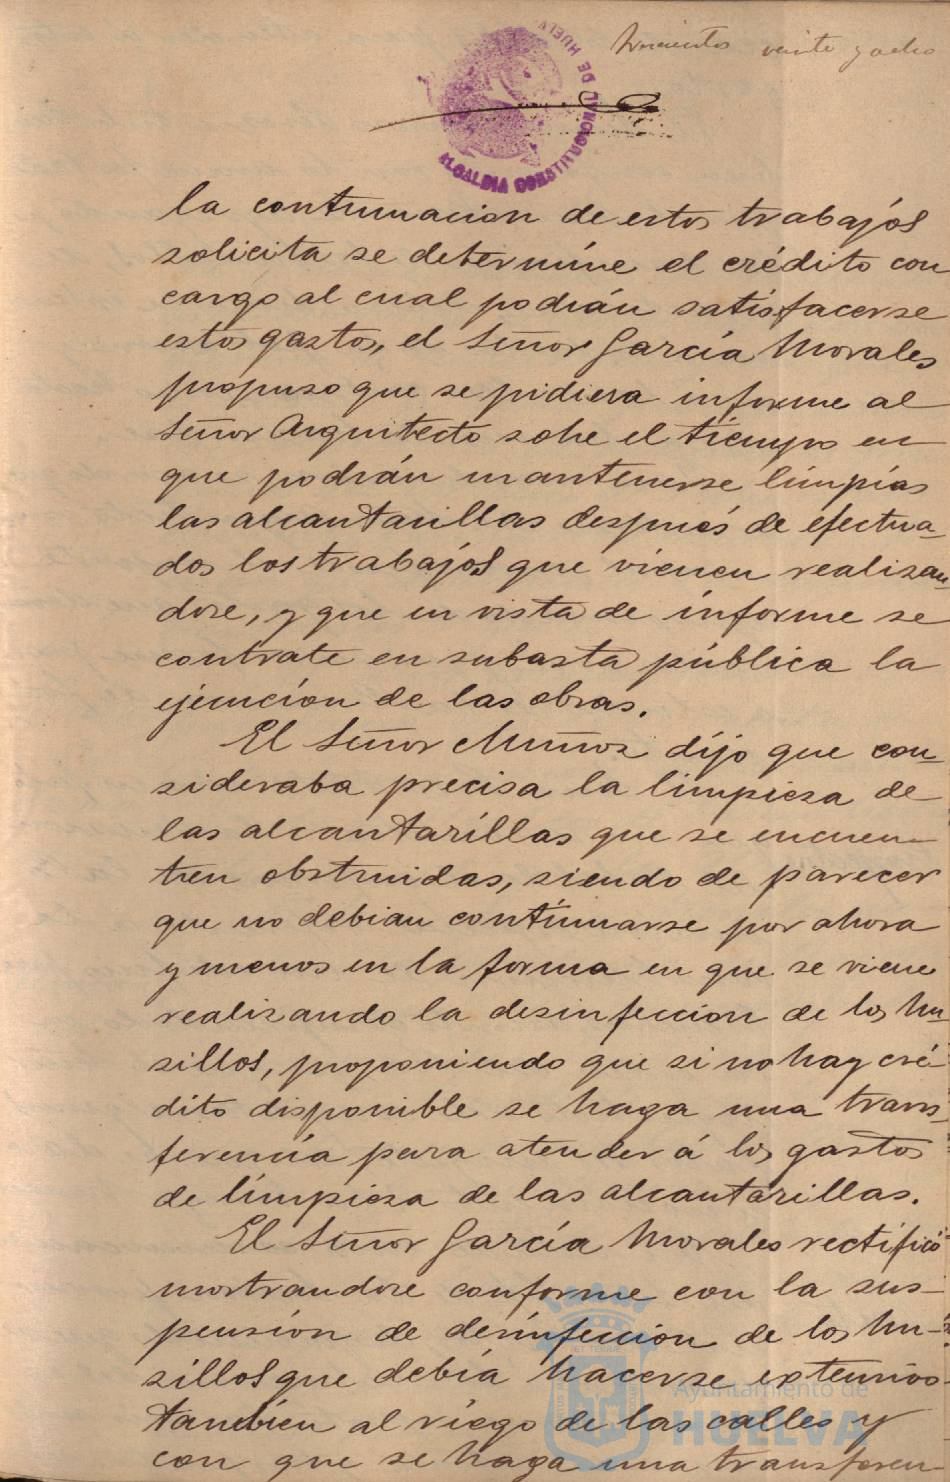 trescientos veinte y ocho
ALCALDIA CONSTITUCIONAL DE HUELVA
la continuacion de estos trabajos
solicita se determine el crédito con
cargo al cual podrán satisfacerse
estos gastos, el Señor García Morales
propuso que se pidiera informe al
Señor Arquitecto sobre el tiempo en
que podrán mantenerse limpias
las alcantarillas después de efectua-
dos los trabajos que vienen realizan-
dose, y que en vista de informe se
contrate en subasta pública la
ejecución de las obras.
El Señor Muñoz dijo que con-
sideraba precisa la limpieza de
las alcantarillas que se encuen-
tren obstruidas, siendo de parecer
que no debian continuarse por ahora
y menos en la forma en que se viene
realizando la desinfeccion de los hu-
sillos, proponiendo que si no hay cré-
dito disponible se haga una trans-
ferencia para atender á los gastos
de limpieza de las alcantarillas.
El Señor García Morales rectificó
mostrandose conforme con la sus-
pensión de desinfección de los hu-
sillos que debía hacerse extensivo
tambien al riego de las calles y
con que se haga una transferen-
Ayuntamiento de
HUELVA